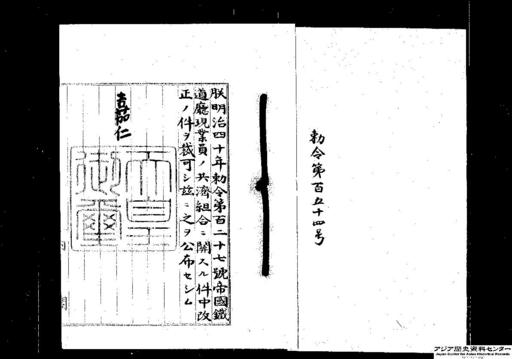 勅令第百五十四号
朕明治四十年勅令第百二十七號帝國鐵
道廳現業員ノ共濟組合ニ關スル件中改
正ノ件ヲ裁可シ茲ニ之ヲ公布セシム
嘉仁
天皇御璽
内閣
アジア歴史資料センター
Japan Center for Asian Historical Records